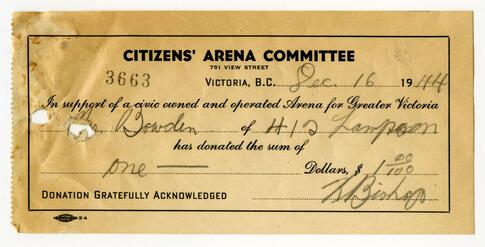 CITIZENS' ARENA COMMITTEE
751 VIEW STREET
3663 VICTORIA, B.C. Dec. 16 1944
In support of a civic owned and operated Arena for Greater Victoria
Bowden of 412 Lampson
has donated the sum of
one — Dollars, $ 1 00/100
DONATION GRATEFULLY ACKNOWLEDGED Bishop
24